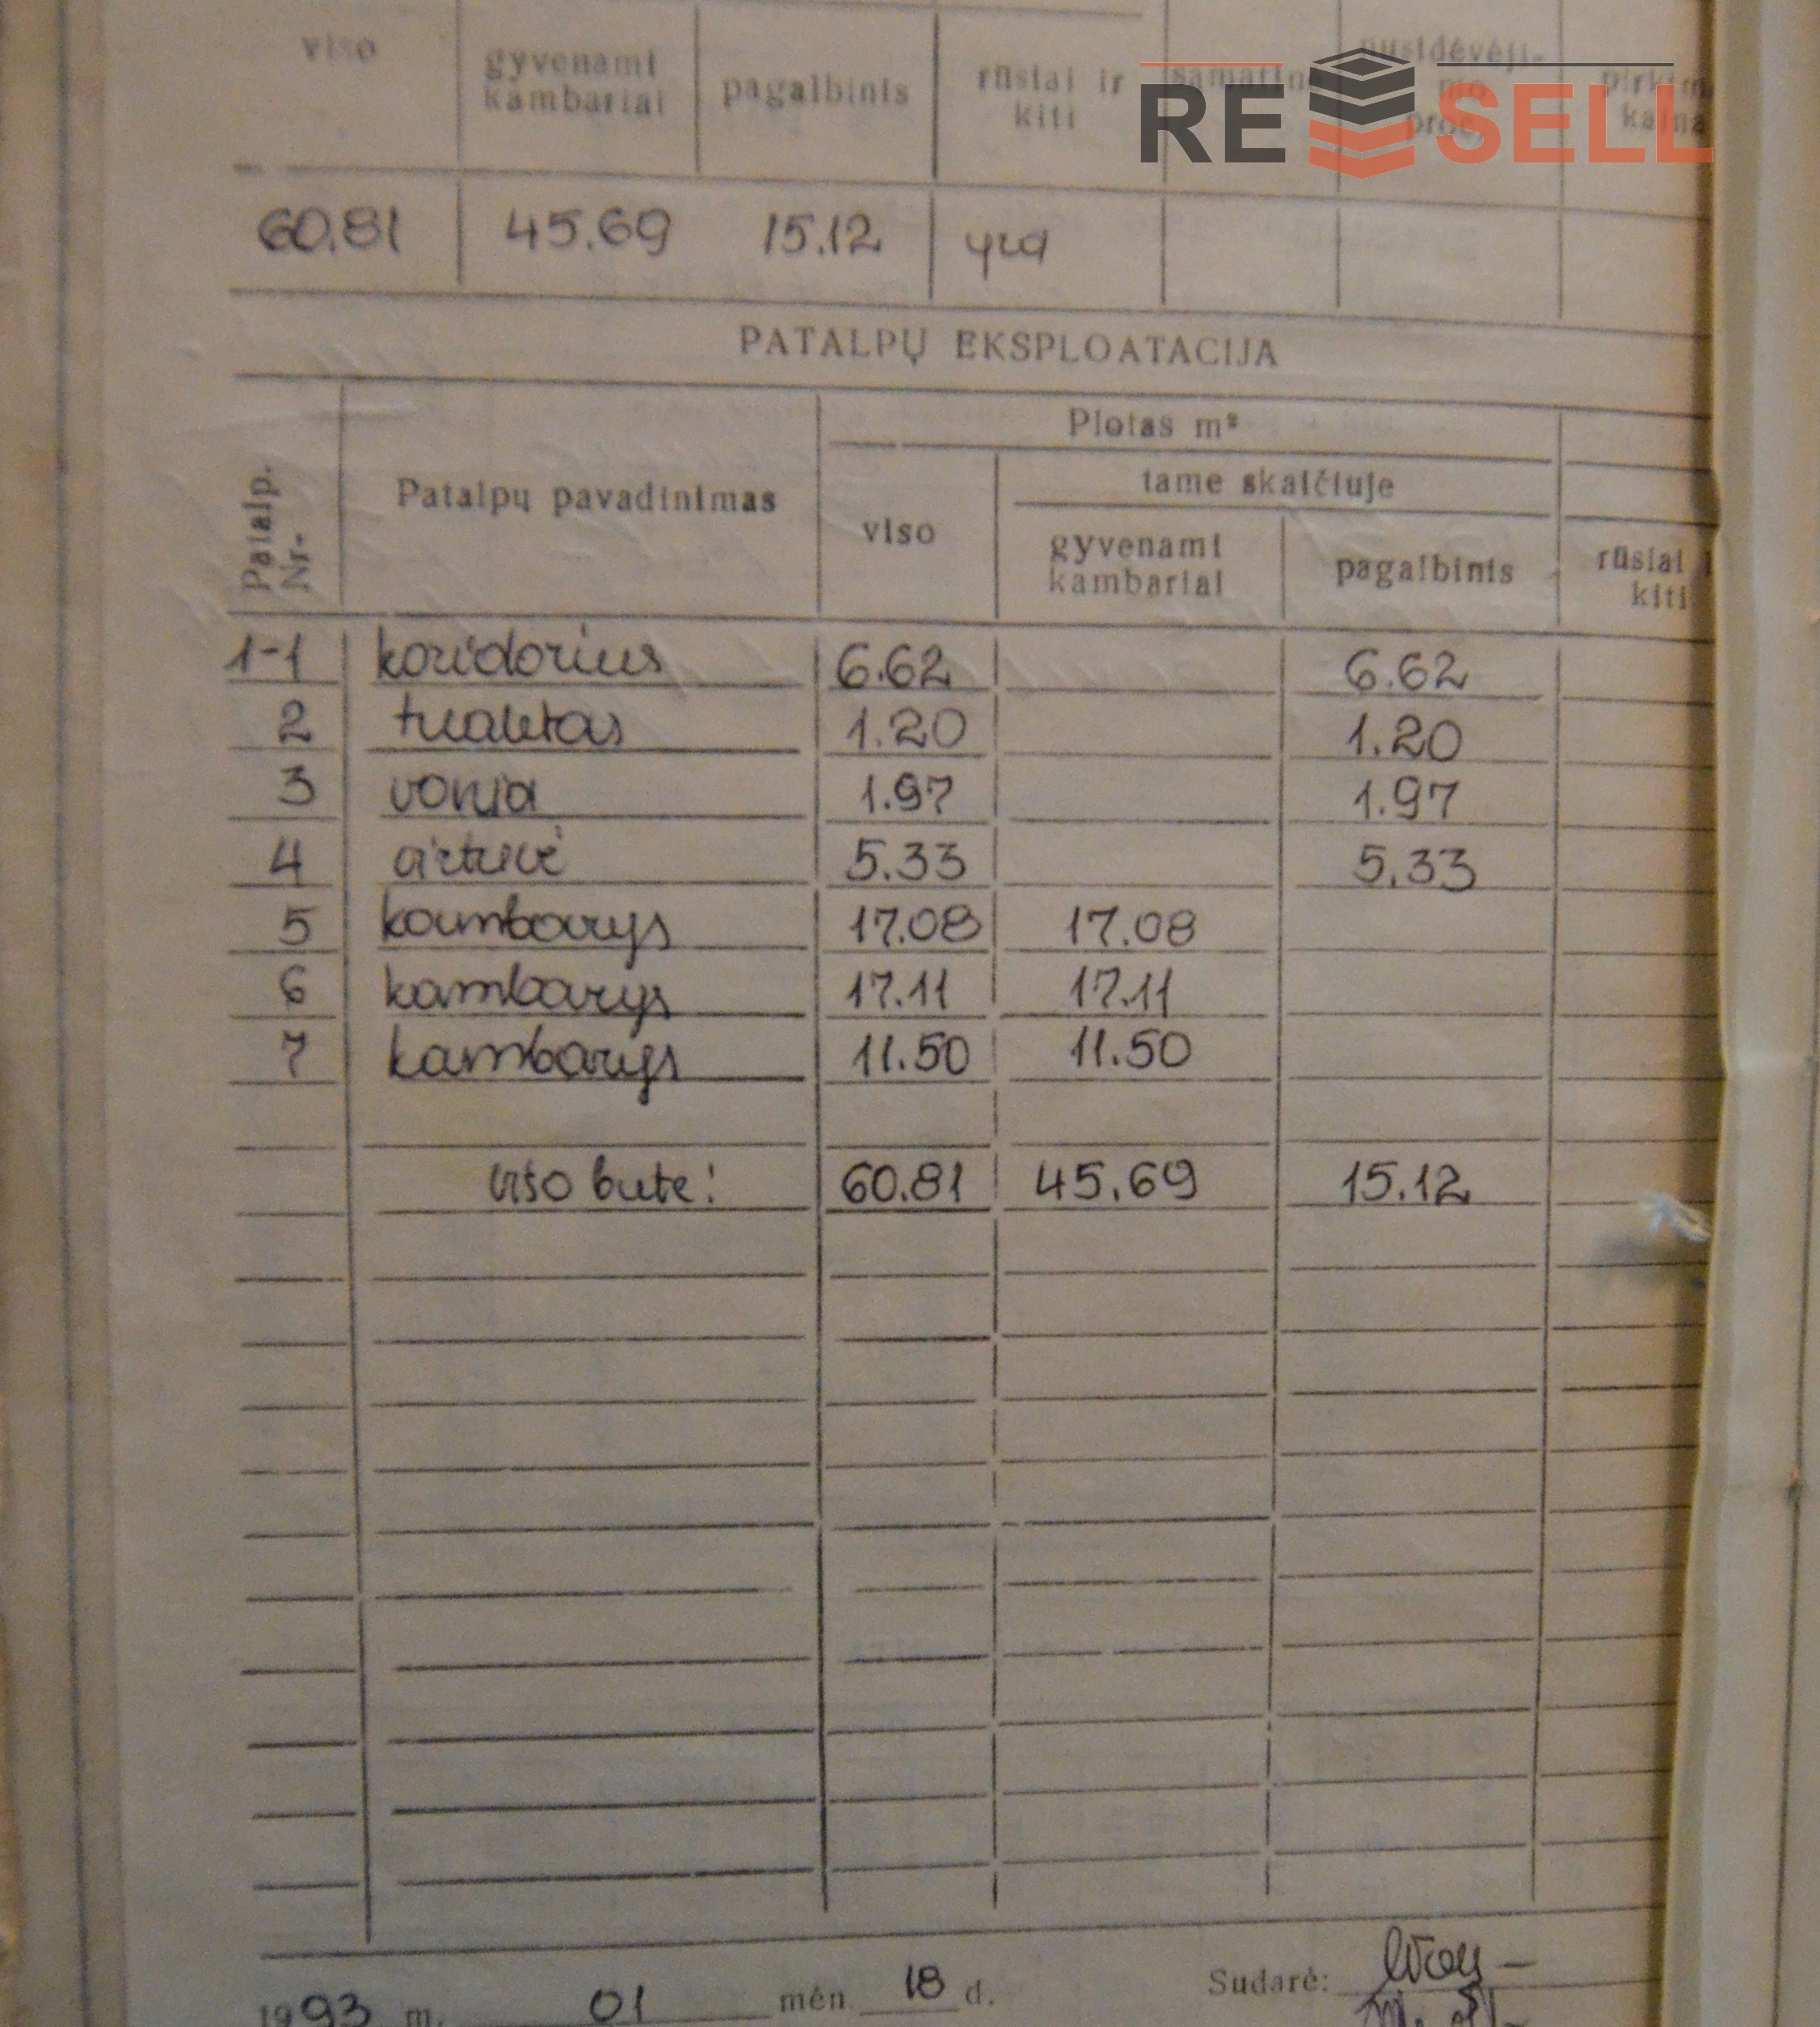 viso gyvenami kambariai pagalbinis rūsiai ir kiti
RE SELL
60.81 45.69 15.12 yra
PATALPŲ EKSPLOATACIJA
Plotas m²
tame skaičiuje
Patalp. Nr. Patalpų pavadinimas viso gyvenami kambariai pagalbinis rūsiai kiti
1-1 koridorius 6.62 6.62
2 tualetas 1.20 1.20
3 vonia 1.97 1.97
4 virtuvė 5.33 5.33
5 kambarys 17.08 17.08
6 kambarys 17.11 17.11
7 kambarys 11.50 11.50
viso bute: 60.81 45.69 15.12
1993 m. 01 mėn 18 d. Sudarė: